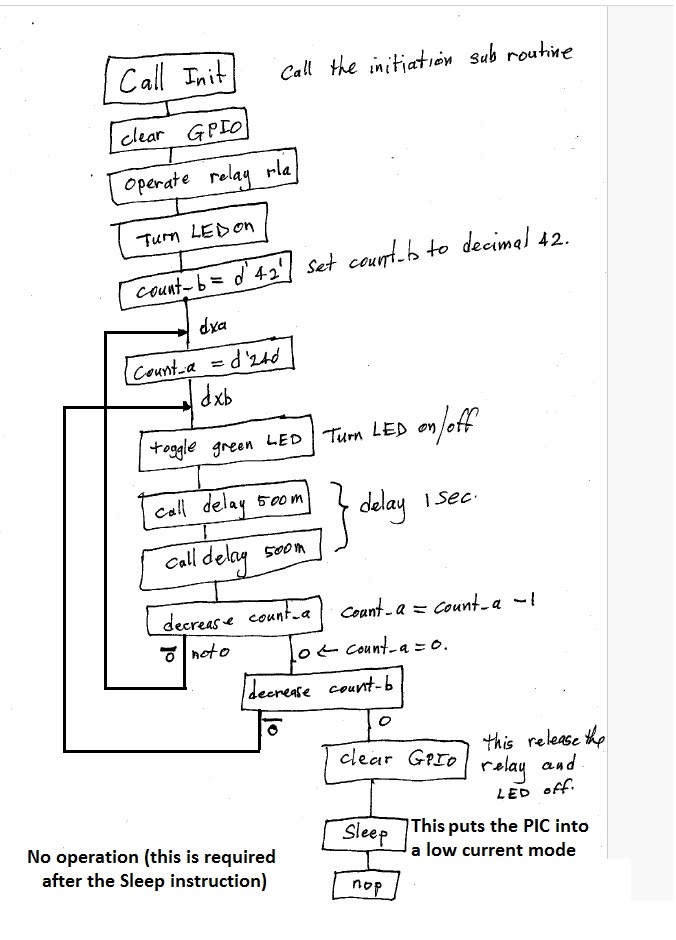 Call Init
Call the initiation sub routine
clear GPIO
operate relay rla
Turn LED on
count-b = d'42'
set count-b to decimal 42.
dxa
Count-a = d'24d
dxb
toggle green LED
Turn LED on/off
call delay 500m
delay 1 sec.
call delay 500m
decrease count-a
Count-a = count-a -1
0̅ not 0
0 ← count-a = 0.
decrease count-b
0̅
0
clear GPIO
this release the
relay and
LED off.
Sleep
This puts the PIC into
a low current mode
No operation (this is required
after the Sleep instruction)
nop